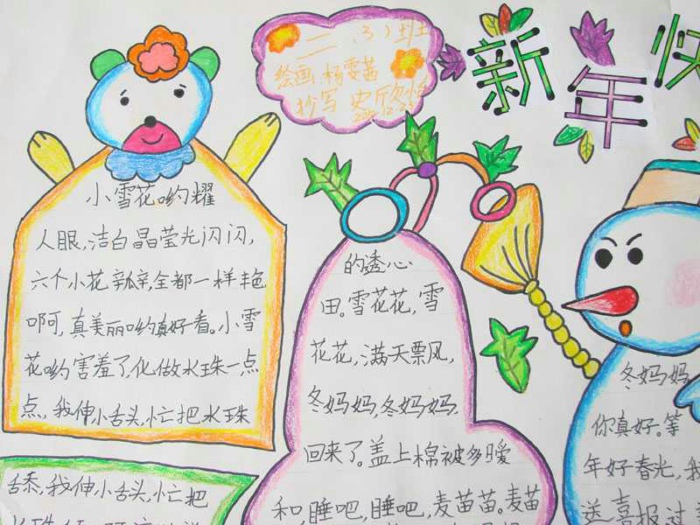 二.3)班
绘画杨雯茜
抄写史欣怡
新年快
小雪花哟耀
人眼,洁白晶莹光闪闪,
六个小花瓣,全都一样艳
啊,真美丽哟真好看。小雪
花哟害羞了,化做水珠一点
点,我伸小舌头,忙把水珠
舌舔,我伸小舌头,忙把
的透心
田。雪花花,雪
花花,满天票风,
冬妈妈,冬妈妈.
回来了。盖上棉被多暖
和睡吧,睡吧,麦苗苗。麦苗
冬妈妈
你真好。等
年好春光,我
送喜报过